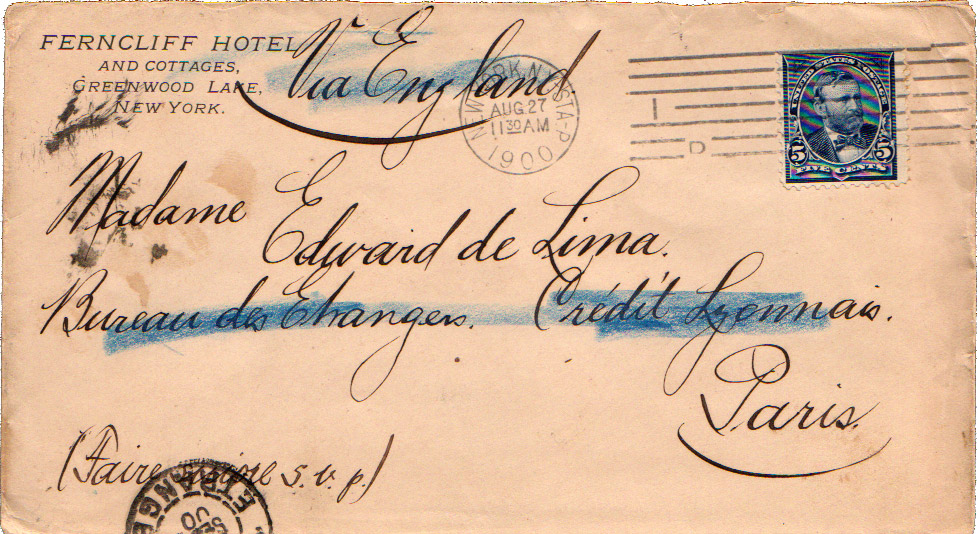 FERNCLIFF HOTEL
AND COTTAGES,
GREENWOOD LAKE,
NEW YORK.
Via England.
NEW YORK, N.Y. STA-P
AUG.27
11 30 AM
1900
I
D
UNITED STATES POSTAGE
5 5
FIVE CENTS
Madame
Edward de Lima.
Bureau des Etrangers. Crédit Lyonnais.
Paris.
(Faire suivre s. v. p.)
ETRANGE
00